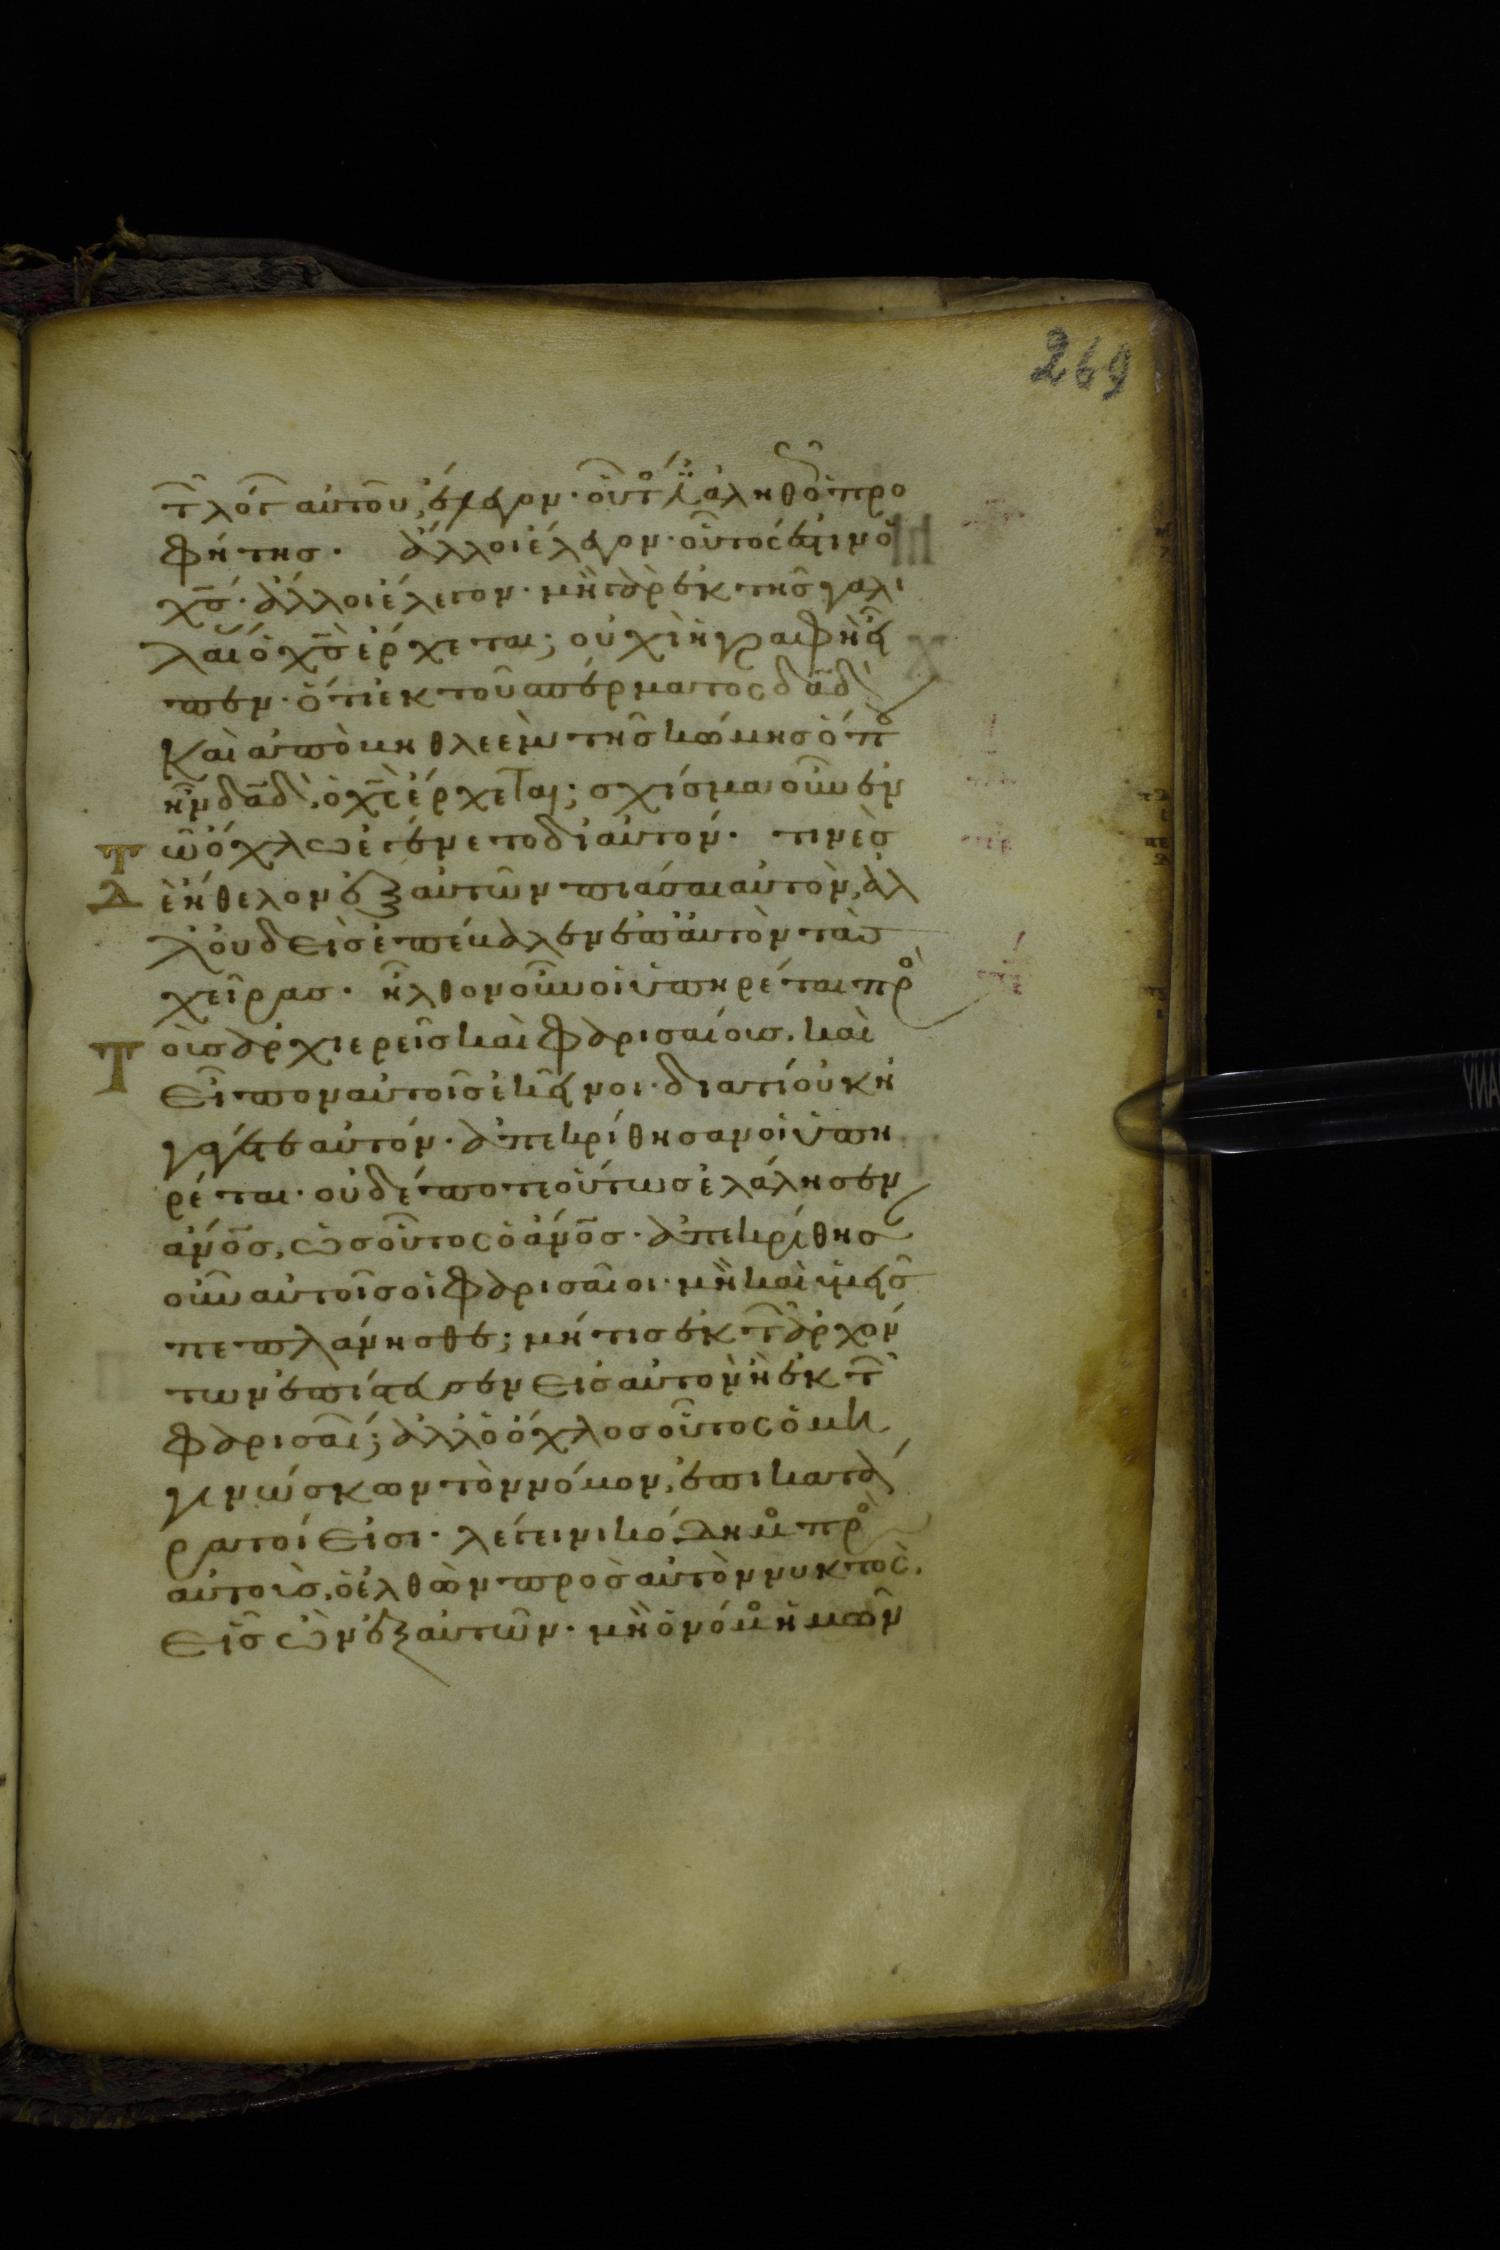 269
τῶ λόγ αὐτοῦ, ἔλεγον· οὗτό ἐ ἀληθῶ ὁ προ
φήτης. ἄλλοι ἔλεγον· οὗτός ἐστιν ὁ
χς· ἄλλοι ἔλεγον· μὴ γὰρ ἐκ τῆς γαλι
λαί ὁ χς ἔρχεται; οὐχὶ ἡ γραφὴ εἶ
πεν· ὅτι ἐκ τοῦ σπέρματος δαδ
καὶ ἀπὸ βηθλεὲμ τῆς κώμης ὅπ
ἦν δαδ, ὁ χς ἔρχεται; σχίσμα οὖν ἐν
τῶ ὄχλω ἐγένετο δι αὐτόν. τινὲς
δὲ ἤθελον ἐξ αὐτῶν πιάσαι αὐτὸν, ἀλ
λ οὐδεὶς ἐπέβαλεν ἐπ αὐτὸν τὰς
χεῖρας. ἦλθον οὖν οἱ ὑπηρέται πρὸ
τοὺς ἀρχιερεῖς καὶ φαρισαίους. καὶ
εἶπον αὐτοῖς ἐκεῖνοι· διατί οὐκ ἠ
γάγετε αὐτόν. ἀπεκρίθησαν οἱ ὑπη
ρέται· οὐδέποτε οὕτως ἐλάλησεν
ἄνος, ὡς οὗτος ὁ ἄνος. ἀπεκρίθησ
οὖν αὐτοῖς οἱ φαρισαῖοι· μὴ καὶ ὑμεῖς
πεπλάνησθε; μή τις ἐκ τῶ ἀρχόν
των ἐπίστευσεν εἰς αὐτὸν ἢ ἐκ τῶ
φαρισαί; ἀλλ ὁ ὄχλος οὗτος ὁ μὴ
γινώσκων τὸν νόμον, ἐπικατά
ρατοί εἰσι. λέγει νικόδημ πρὸ
αὐτούς, ὁ ἐλθὼν πρὸς αὐτὸν νυκτὸς,
εἷς ὢν ἐξ αὐτῶν. μὴ ὁ νόμ ἡμῶν